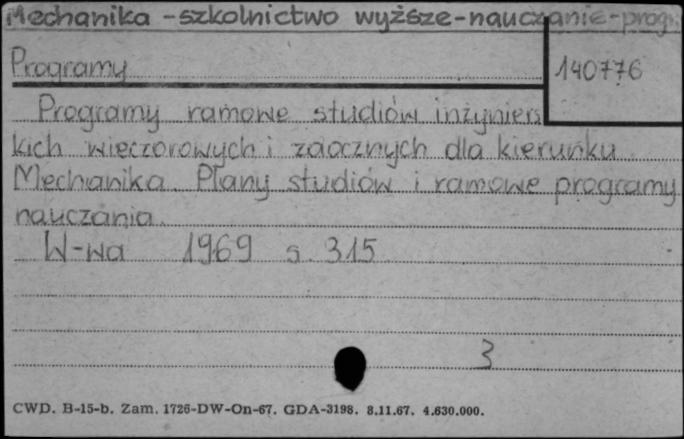 Mechanika - szkolnictwo wyższe - nauczanie - progr.
Programy
140776
Programy ramowe studiów inżyniers
kich wieczorowych i zaocznych dla kierunku
Mechanika. Plany studiów i ramowe programy
nauczania.
W-wa 1969 s. 315
3
CWD. B-15-b. Zam. 1726-DW-On-67. GDA-3198. 8.11.67. 4.630.000.